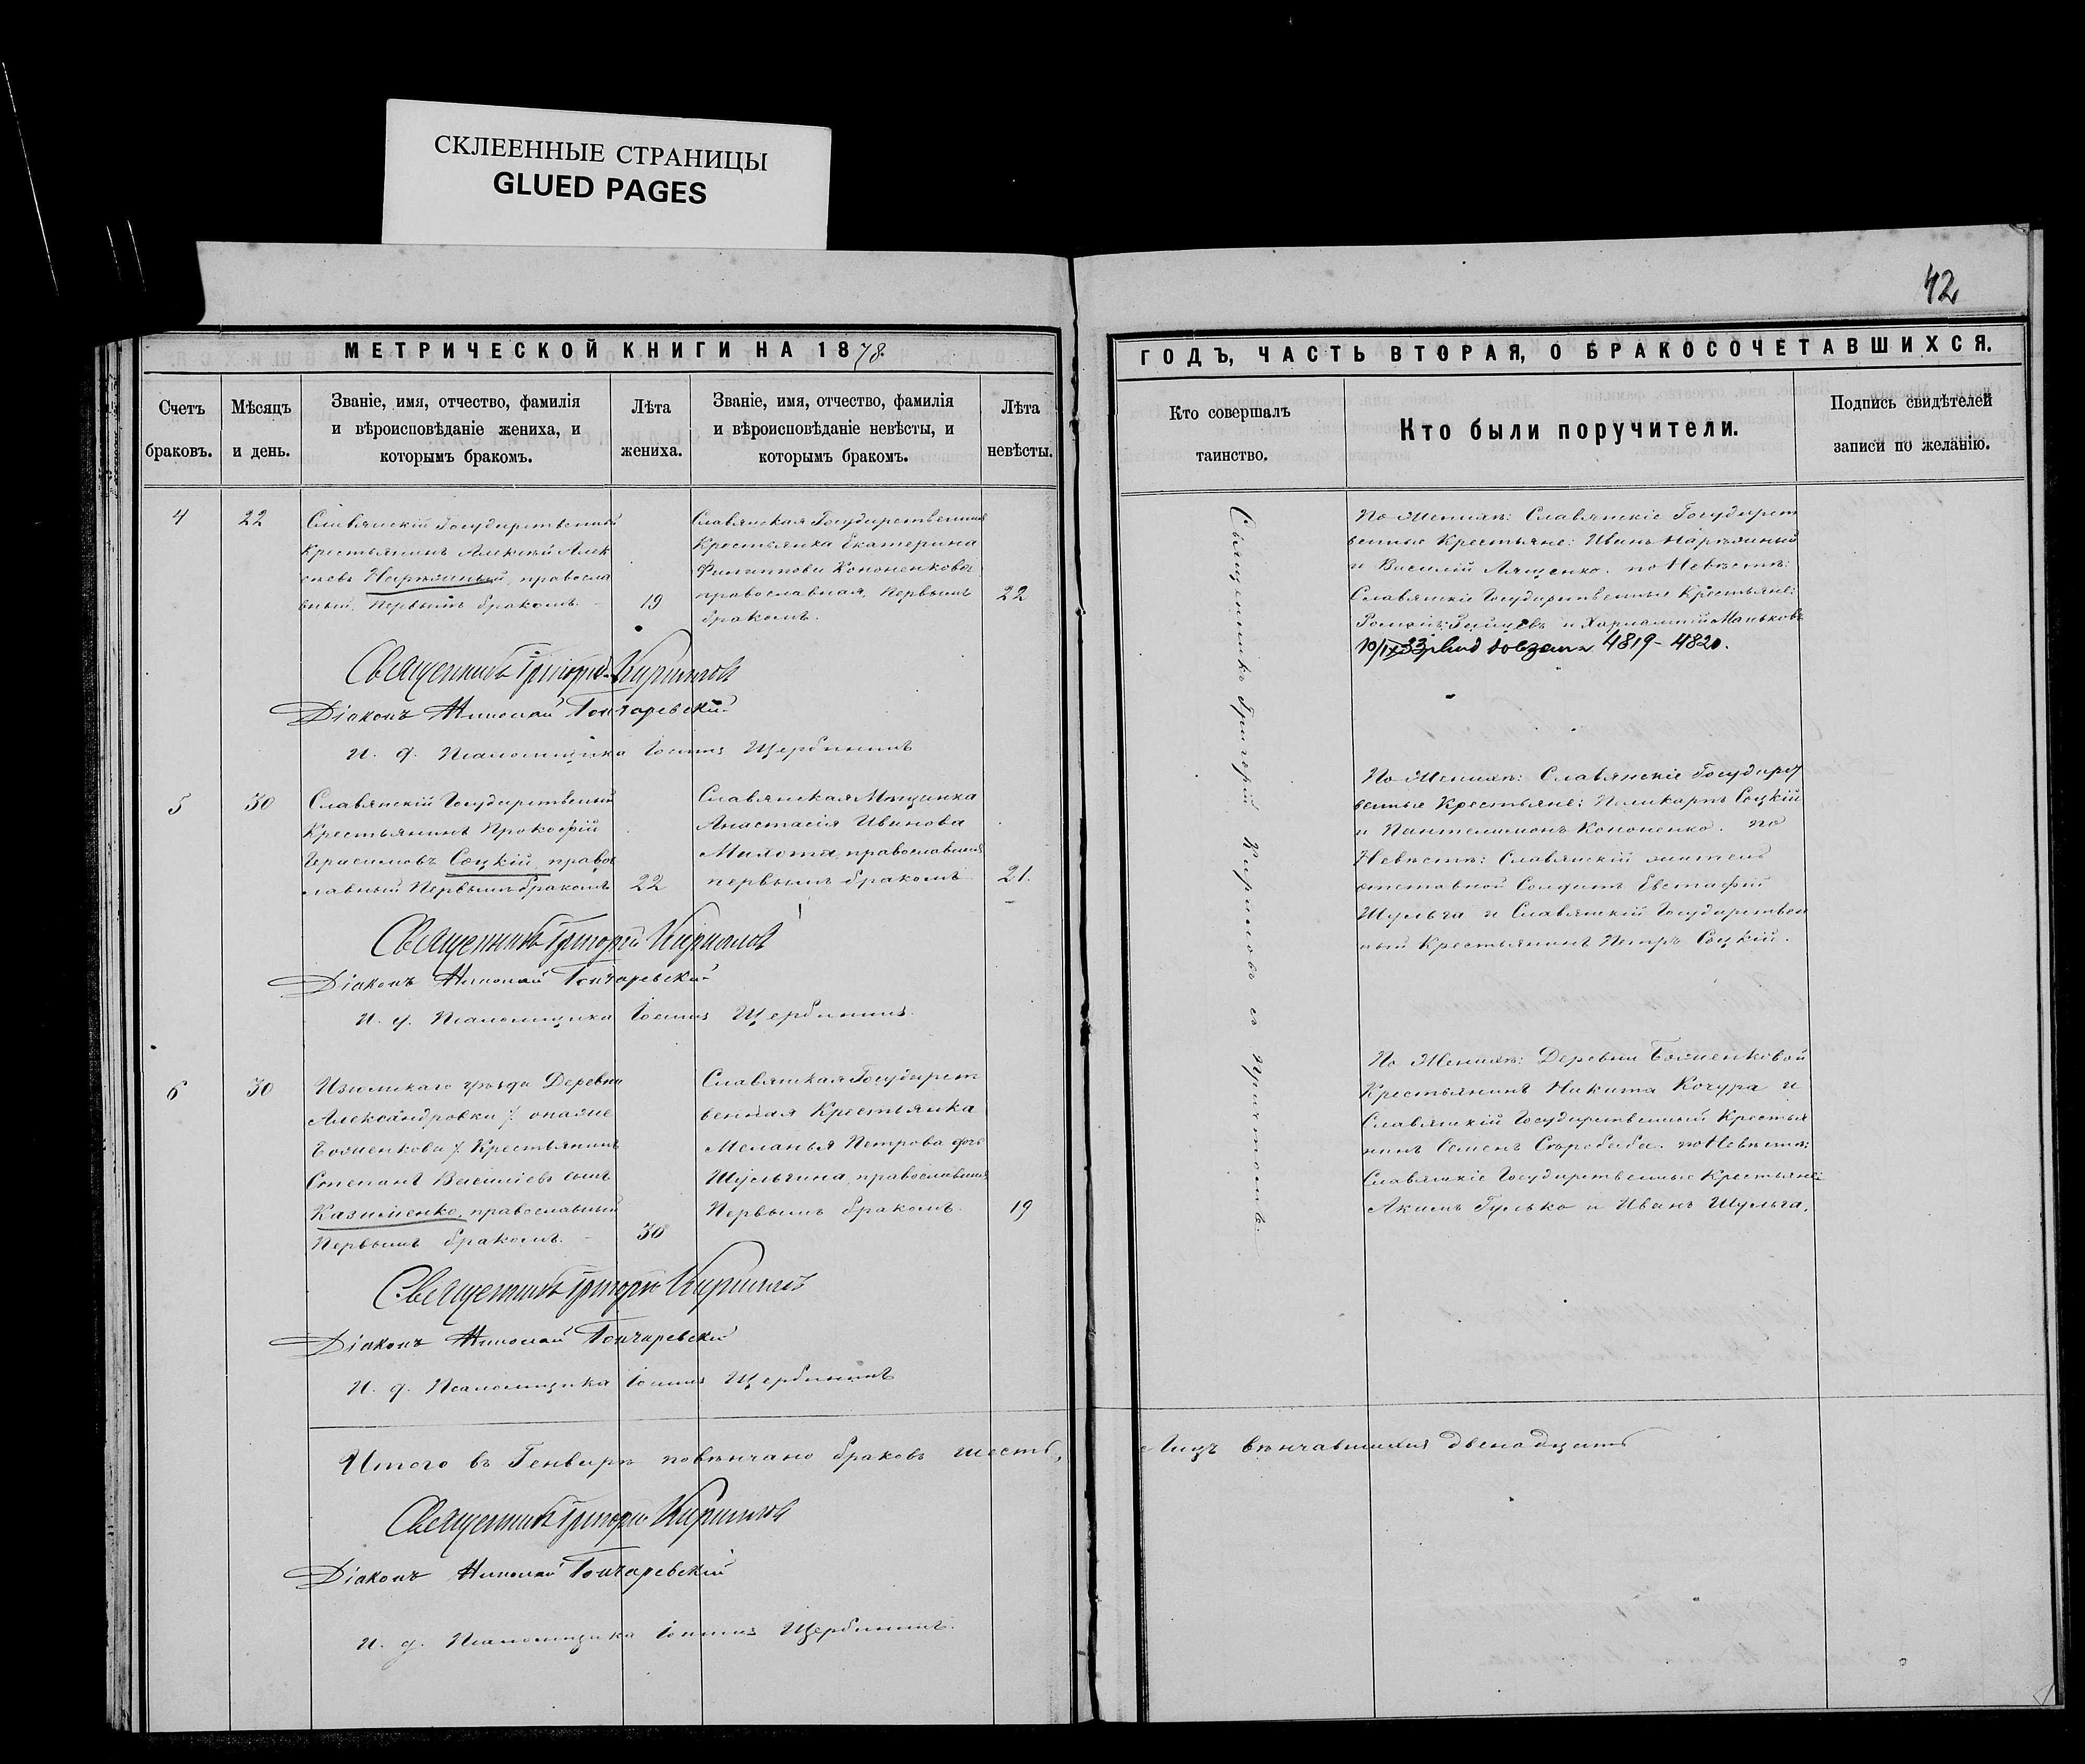 СКЛЕЕННЫЕ СТРАНИЦЫ
GLUED PAGES
42
МЕТРИЧЕСКОЙ КНИГИ НА 1878
ГОДЪ, ЧАСТЬ ВТОРАЯ, О БРАКОСОЧЕТАВШИХСЯ.
Счетъ браковъ.
Мѣсяцъ и день.
Званіе, имя, отчество, фамилія
и вѣроисповѣданіе жениха, и
которымъ бракомъ.
Лѣта
жениха.
Званіе, имя, отчество, фамилія
и вѣроисповѣданіе невѣсты, и
которымъ бракомъ.
Лѣта
невѣсты.
Кто совершалъ
таинство.
Кто были поручители.
Подпись свидѣтелей
записи по желанію.
4
22
Славянскій Государственный
Крестьянинъ Алексѣй Алек
сѣевъ Нарѣжный, правосла
вный, Первымъ бракомъ.
19
Славянская Государственная
Крестьянка Екатерина
Филиппова Кононенкова
православная, Первымъ
бракомъ.
22
Священникъ Григорій Кириловъ съ причтомъ.
По Женихѣ: Славянскіе Государст
венные Крестьяне: Иванъ Нарѣжный
и Василій Ляшенко. по Невѣстѣ:
Славянскіе Государственные Крестьяне:
Романъ Зайцевъ и Харлампій Маньковъ
4819-4820.
Священникъ Григорій Кириловъ
Діаконъ Николай Гончаревскій
И. д. Псаломщика Іоаннъ Щербининъ
5
30
Славянскій Государственный
Крестьянинъ Прокофій
Герасимовъ Соцкій, право
славный Первымъ бракомъ
22
Славянская Мѣщанка
Анастасія Иванова
Махота, православная
первымъ бракомъ
21.
По Женихѣ: Славянскіе Государст
венные Крестьяне: Поликарпъ Соцкій
и Пантелимонъ Кононенко. по
Невѣстѣ: Славянскій житель
отставной Солдатъ Евстафій
Шульга и Славянскій Государствен
ный Крестьянинъ Петръ Соцкій.
Священникъ Григорій Кириловъ
Діаконъ Николай Гончаревскій
И. д. Псаломщика Іоаннъ Щербининъ
6
30
Изюмскаго уѣзда Деревни
Александровки /: онаяже
Боженкова :/ Крестьянинъ
Степанъ Василіевъ сынъ
Казименко, православный
Первымъ бракомъ.
30
Славянская Государст
венная Крестьянка
Меланья Петрова дочь
Шульгина, православная
Первымъ бракомъ.
19
По Женихѣ: Деревни Боженковой
Крестьянинъ Никита Кочура и
Славянскій Государственный Крестья
нинъ Семенъ Скробаба. по Невѣстѣ:
Славянскіе Государственные Крестьяне:
Акимъ Гулько и Иванъ Шульга.
Священникъ Григорій Кириловъ
Діаконъ Николай Гончаревскій
И. д. Псаломщика Іоаннъ Щербининъ
Итого въ Генварѣ повѣнчано браковъ шесть,
Лицъ вѣнчавшихся двенадцать
Священникъ Григорій Кириловъ
Діаконъ Николай Гончаревскій
И. д. Псаломщика Іоаннъ Щербининъ.